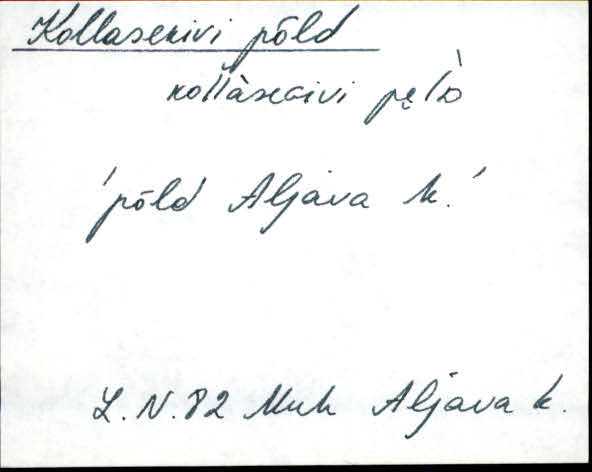 Kollasekivi põld
kollàseɢivi pe̮lᴅ̀
'põld Aljava k.'
L.N.82 Muh Aljava k.